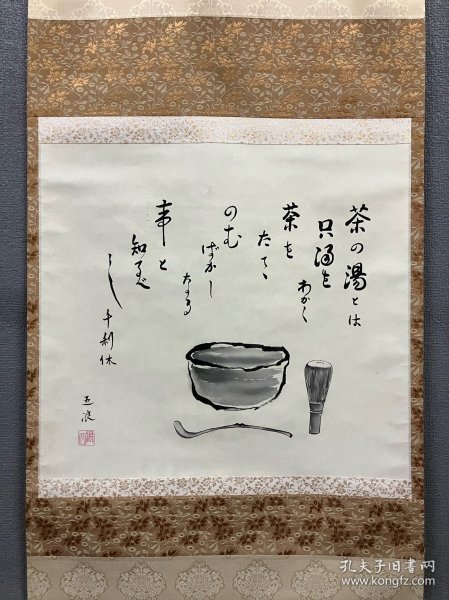 茶の湯とは
只湯を
わかし
茶を
たてゝ
のむ
ばかり
なる
事と
知るべ
し
千利休
孔夫子旧书网
www.kongfz.com